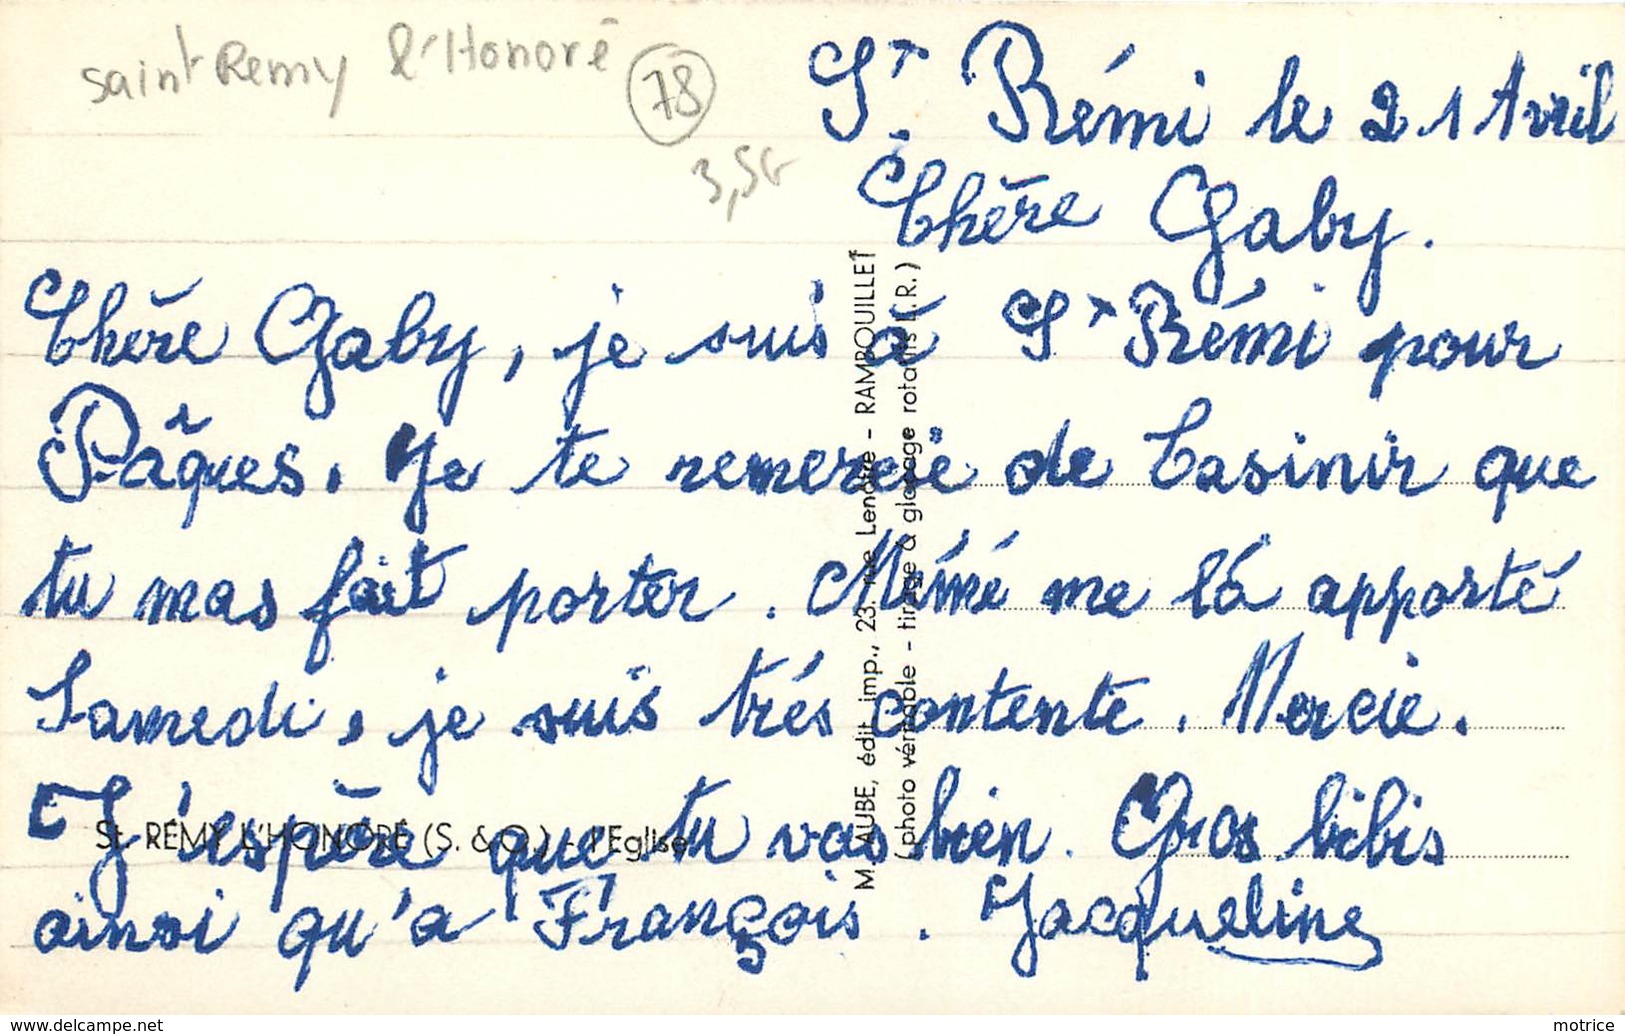 saint Remy l'Honoré 78
3,50
St. Rémi le 21 Avril
Chère Gaby.
Chère Gaby, je suis à St Rémi pour
Pâques. Je te remercie de Casinir que
tu mas fait porter. Mémé me lá apporté
Samedi, je suis trés contente. Mercie.
J'espère que tu vas bien. Gros bibis
ainsi qu'a François. Jacqueline
St. RÉMY L'HONORÉ (S. & O.) - l'Eglise
M. AUBE, édit. imp., 23, rue Lenotre - RAMBOUILLET
(photo véritable - tirage à glaçage rotatifs L. R.)
www.delcampe.net
motrice